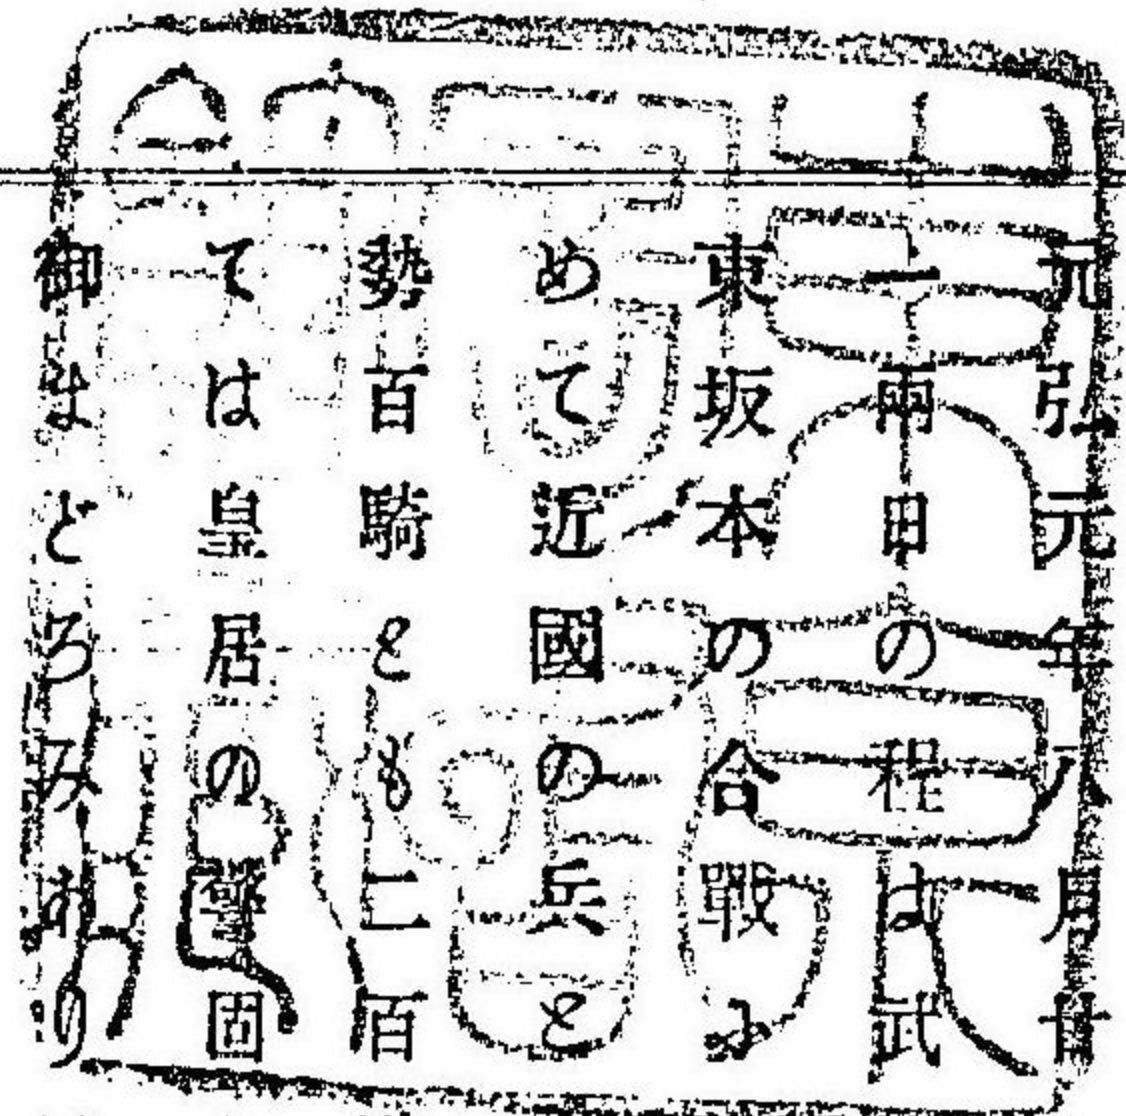 元弘元年八月廿
一兩日の程は武
東坂本の合戰に
めて近國の兵と
勢百騎とも二百
ては皇居の警固
御まどろみあり